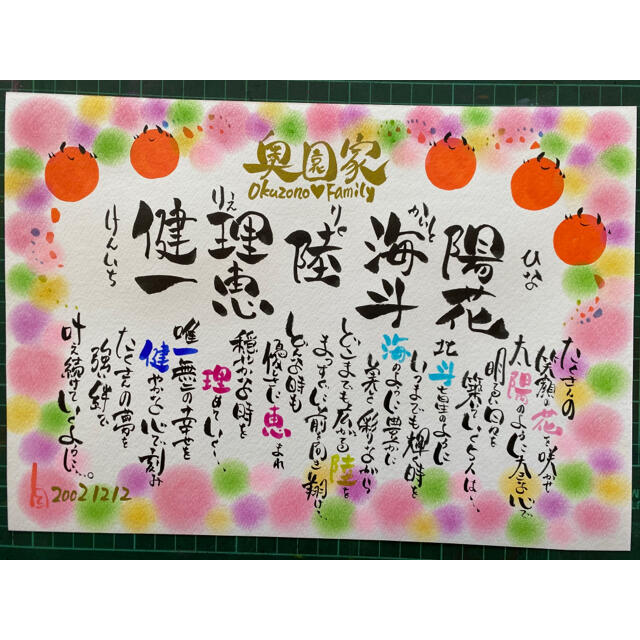 奥園家
Okuzono♥Family
ひな
陽花
かいと
海斗
りく
陸
りえ
理恵
けんいち
健一
たくさんの
笑顔の花を咲かせ
太陽のように大きな心で
明るい日々を
築いていくらんは…
北斗七星のように
いつまでも輝く時を
海のように豊かに
美しく彩りながら
どこまでも広がる陸を
まっすぐに前を向き翔け…
どんな時も
優しさに恵まれ
穏やかな時を
理めていく…
唯一無二の幸せを
健やかな心で刻み
たくさんの夢を
強い絆で
叶え続けていくように…。
2002.12.12